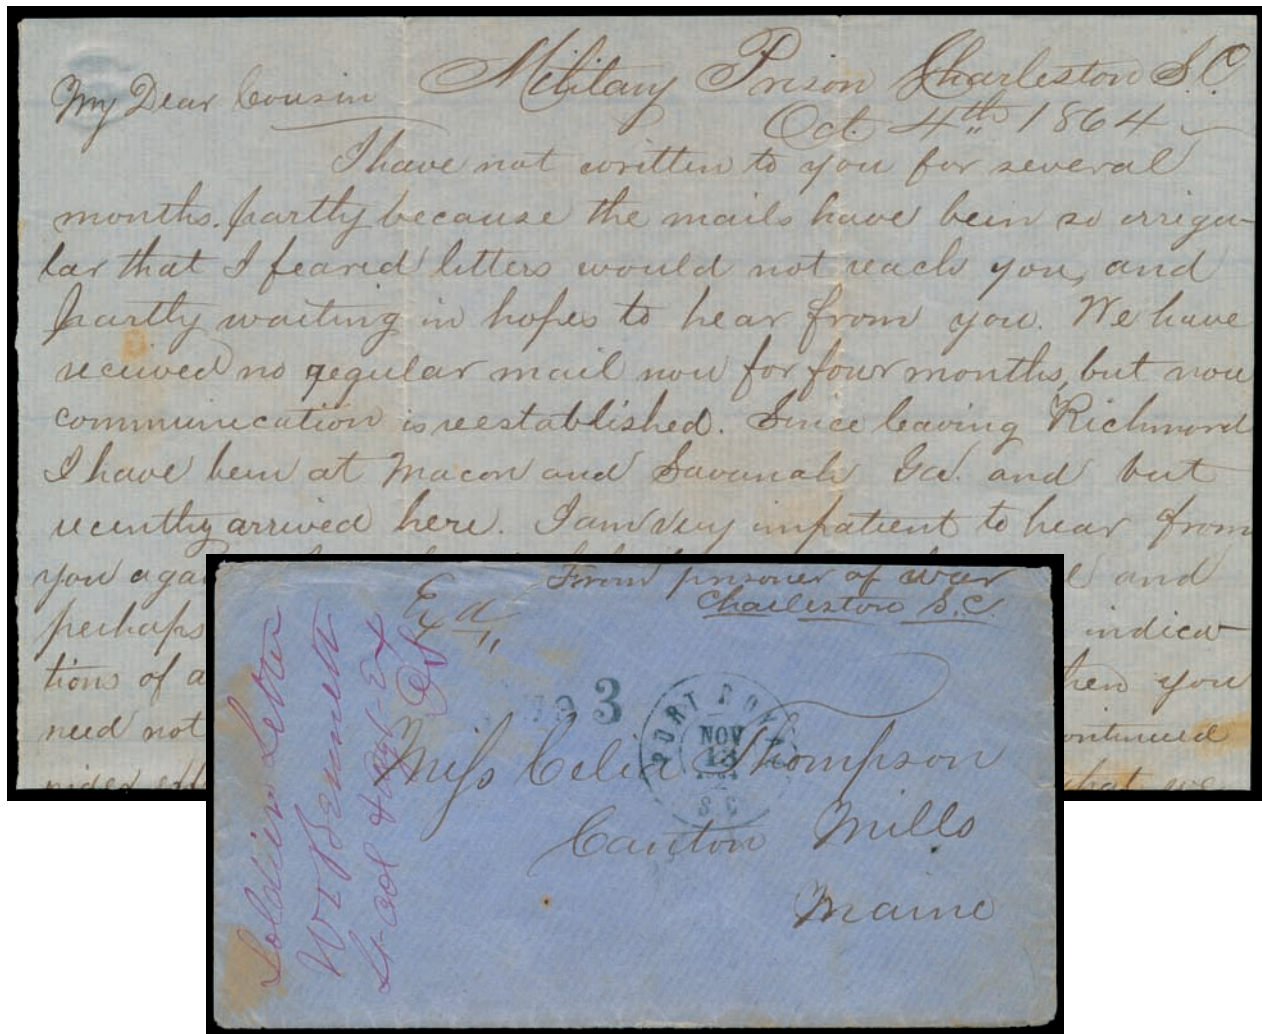 Military Prison Charleston S.C.
Oct. 4th 1864
My Dear Cousin
I have not written to you for several
months. partly because the mails have been so irregu-
lar that I feared letters would not reach you, and
partly waiting in hopes to hear from you. We have
received no regular mail now for four months, but now
communication is reestablished. Since leaving Richmond
I have been at Macon and Savanah Ga. and but
recently arrived here. I am very impatient to hear from
you and
perhaps indica-
tions of hen you
need not ontinued
hat we
From prisoner of war
Charleston S.C.
Exd
3
PORT ROYAL
NOV
13
S.C.
Miss Celia Thompson
Canton Mills
Maine
Soldiers Letter
W Bennett
Lt-Col & Agt-Ex
Of